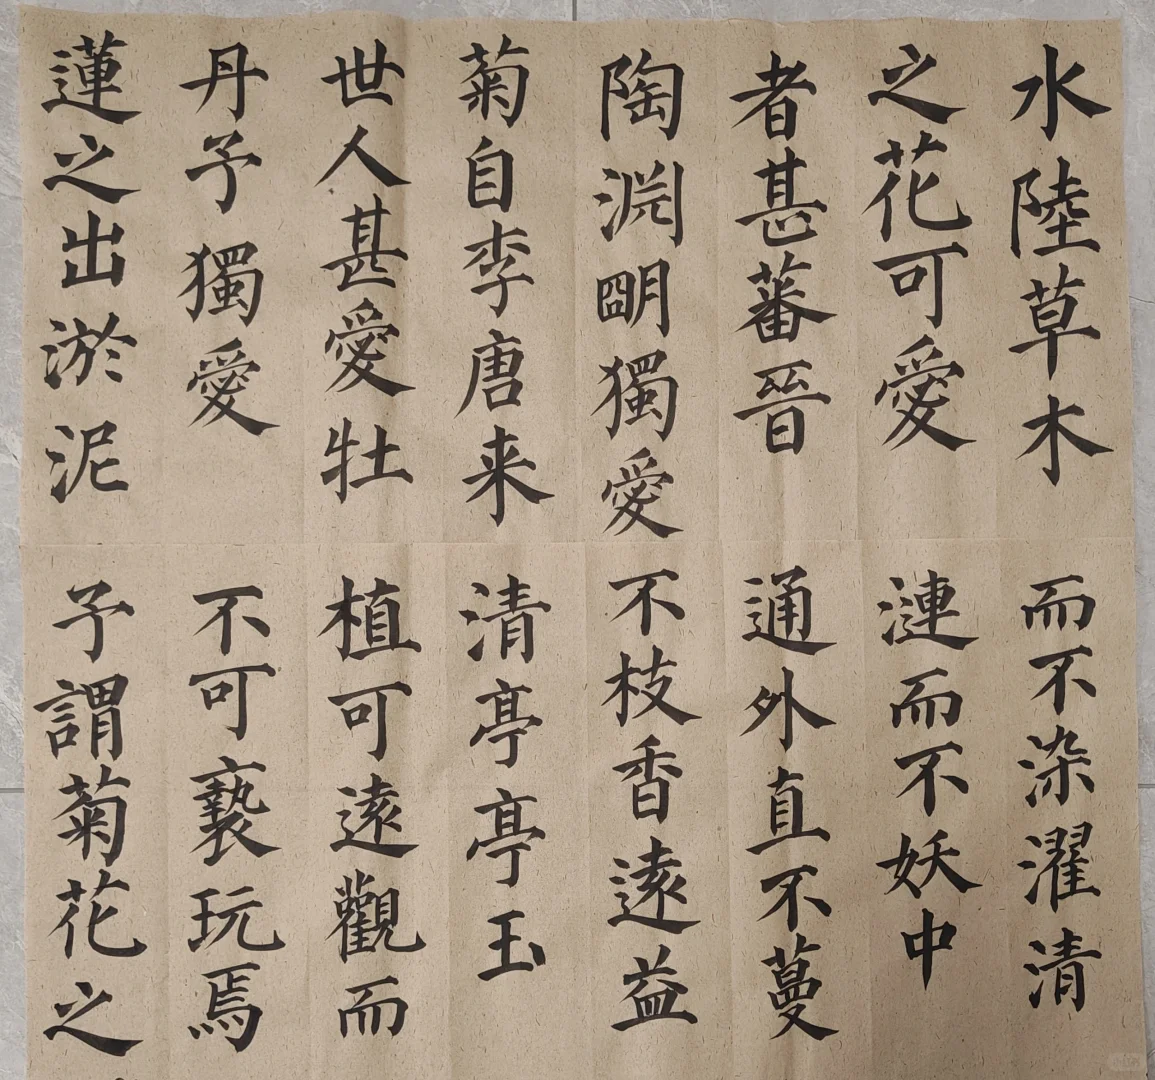 水陸草木
之花可愛
者甚蕃晉
陶淵朙獨愛
菊自李唐来
世人甚愛牡
丹予獨愛
蓮之出淤泥
而不染濯清
漣而不妖中
通外直不蔓
不枝香遠益
清亭亭玉
植可遠觀而
不可褻玩焉
予謂菊花之